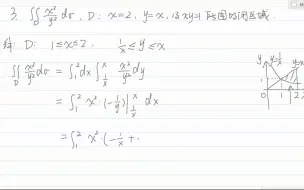 3. ∬_D x²/y² dσ, D: x=2, y=x, 以及 xy=1 所围的闭区域.
解: D: 1≤x≤2, 1/x ≤ y ≤ x
∬_D x²/y² dσ = ∫₁² dx ∫_{1/x}^{x} x²/y² dy
= ∫₁² x²·(-1/y)|_{1/x}^{x} dx
= ∫₁² x²·(-1/x +
y y=1/x y=x
1
0 1 2